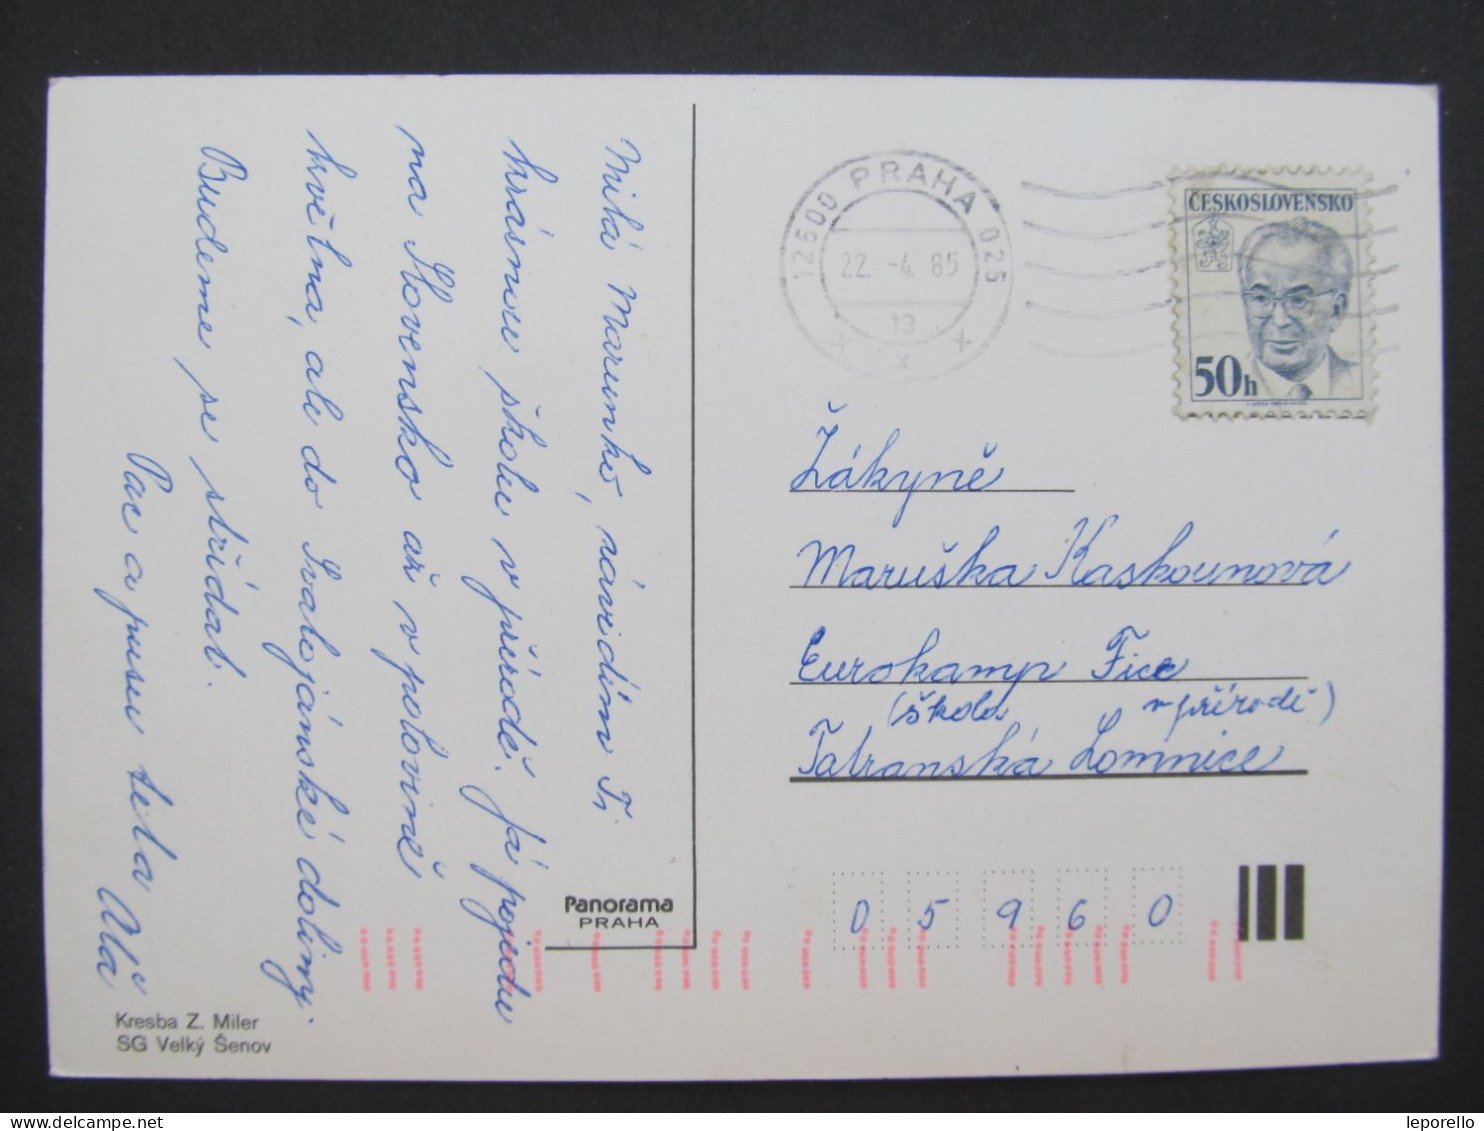 Milá Marunko, závidím Ti
krásnou školu v přírodě. Já pojedu
na Slovensko až v polovině
května, ale do Svatojánské doliny.
Budeme se střídat.
Pac a pusu teta Alá
12500 PRAHA 025
22. -4. 85
13
x x x
ČESKOSLOVENSKO
50h
Žákyně
Maruška Kaskounová
Eurokamp Ficc
(škola v přírodě)
Tatranská Lomnice
05960
Panorama
PRAHA
Kresba Z. Miler
SG Velký Šenov
leporello